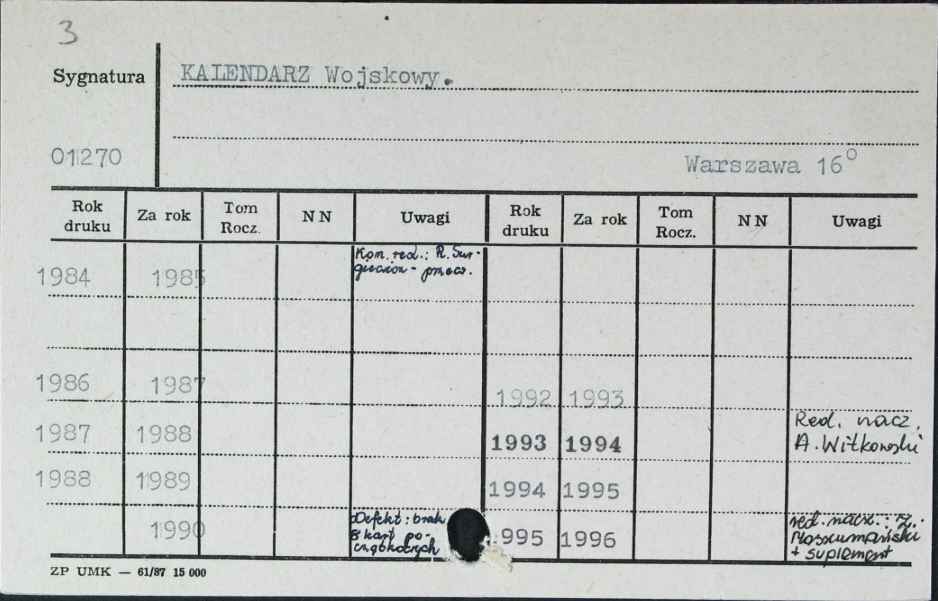 3
Sygnatura KALENDARZ Wojskowy.
01270 Warszawa 16°
Rok druku Za rok Tom Rocz. N N Uwagi Rok druku Za rok Tom Rocz. N N Uwagi
1984 1985 Kom. red.: R. - przew.
1986 1987 1992 1993
1987 1988 1993 1994 Red. nacz. A. Witkowski
1988 1989 1994 1995
1990 Defekt: brak 8 kart początkowych 1995 1996 red. nacz.: + suplement
ZP UMK — 61/87 15 000